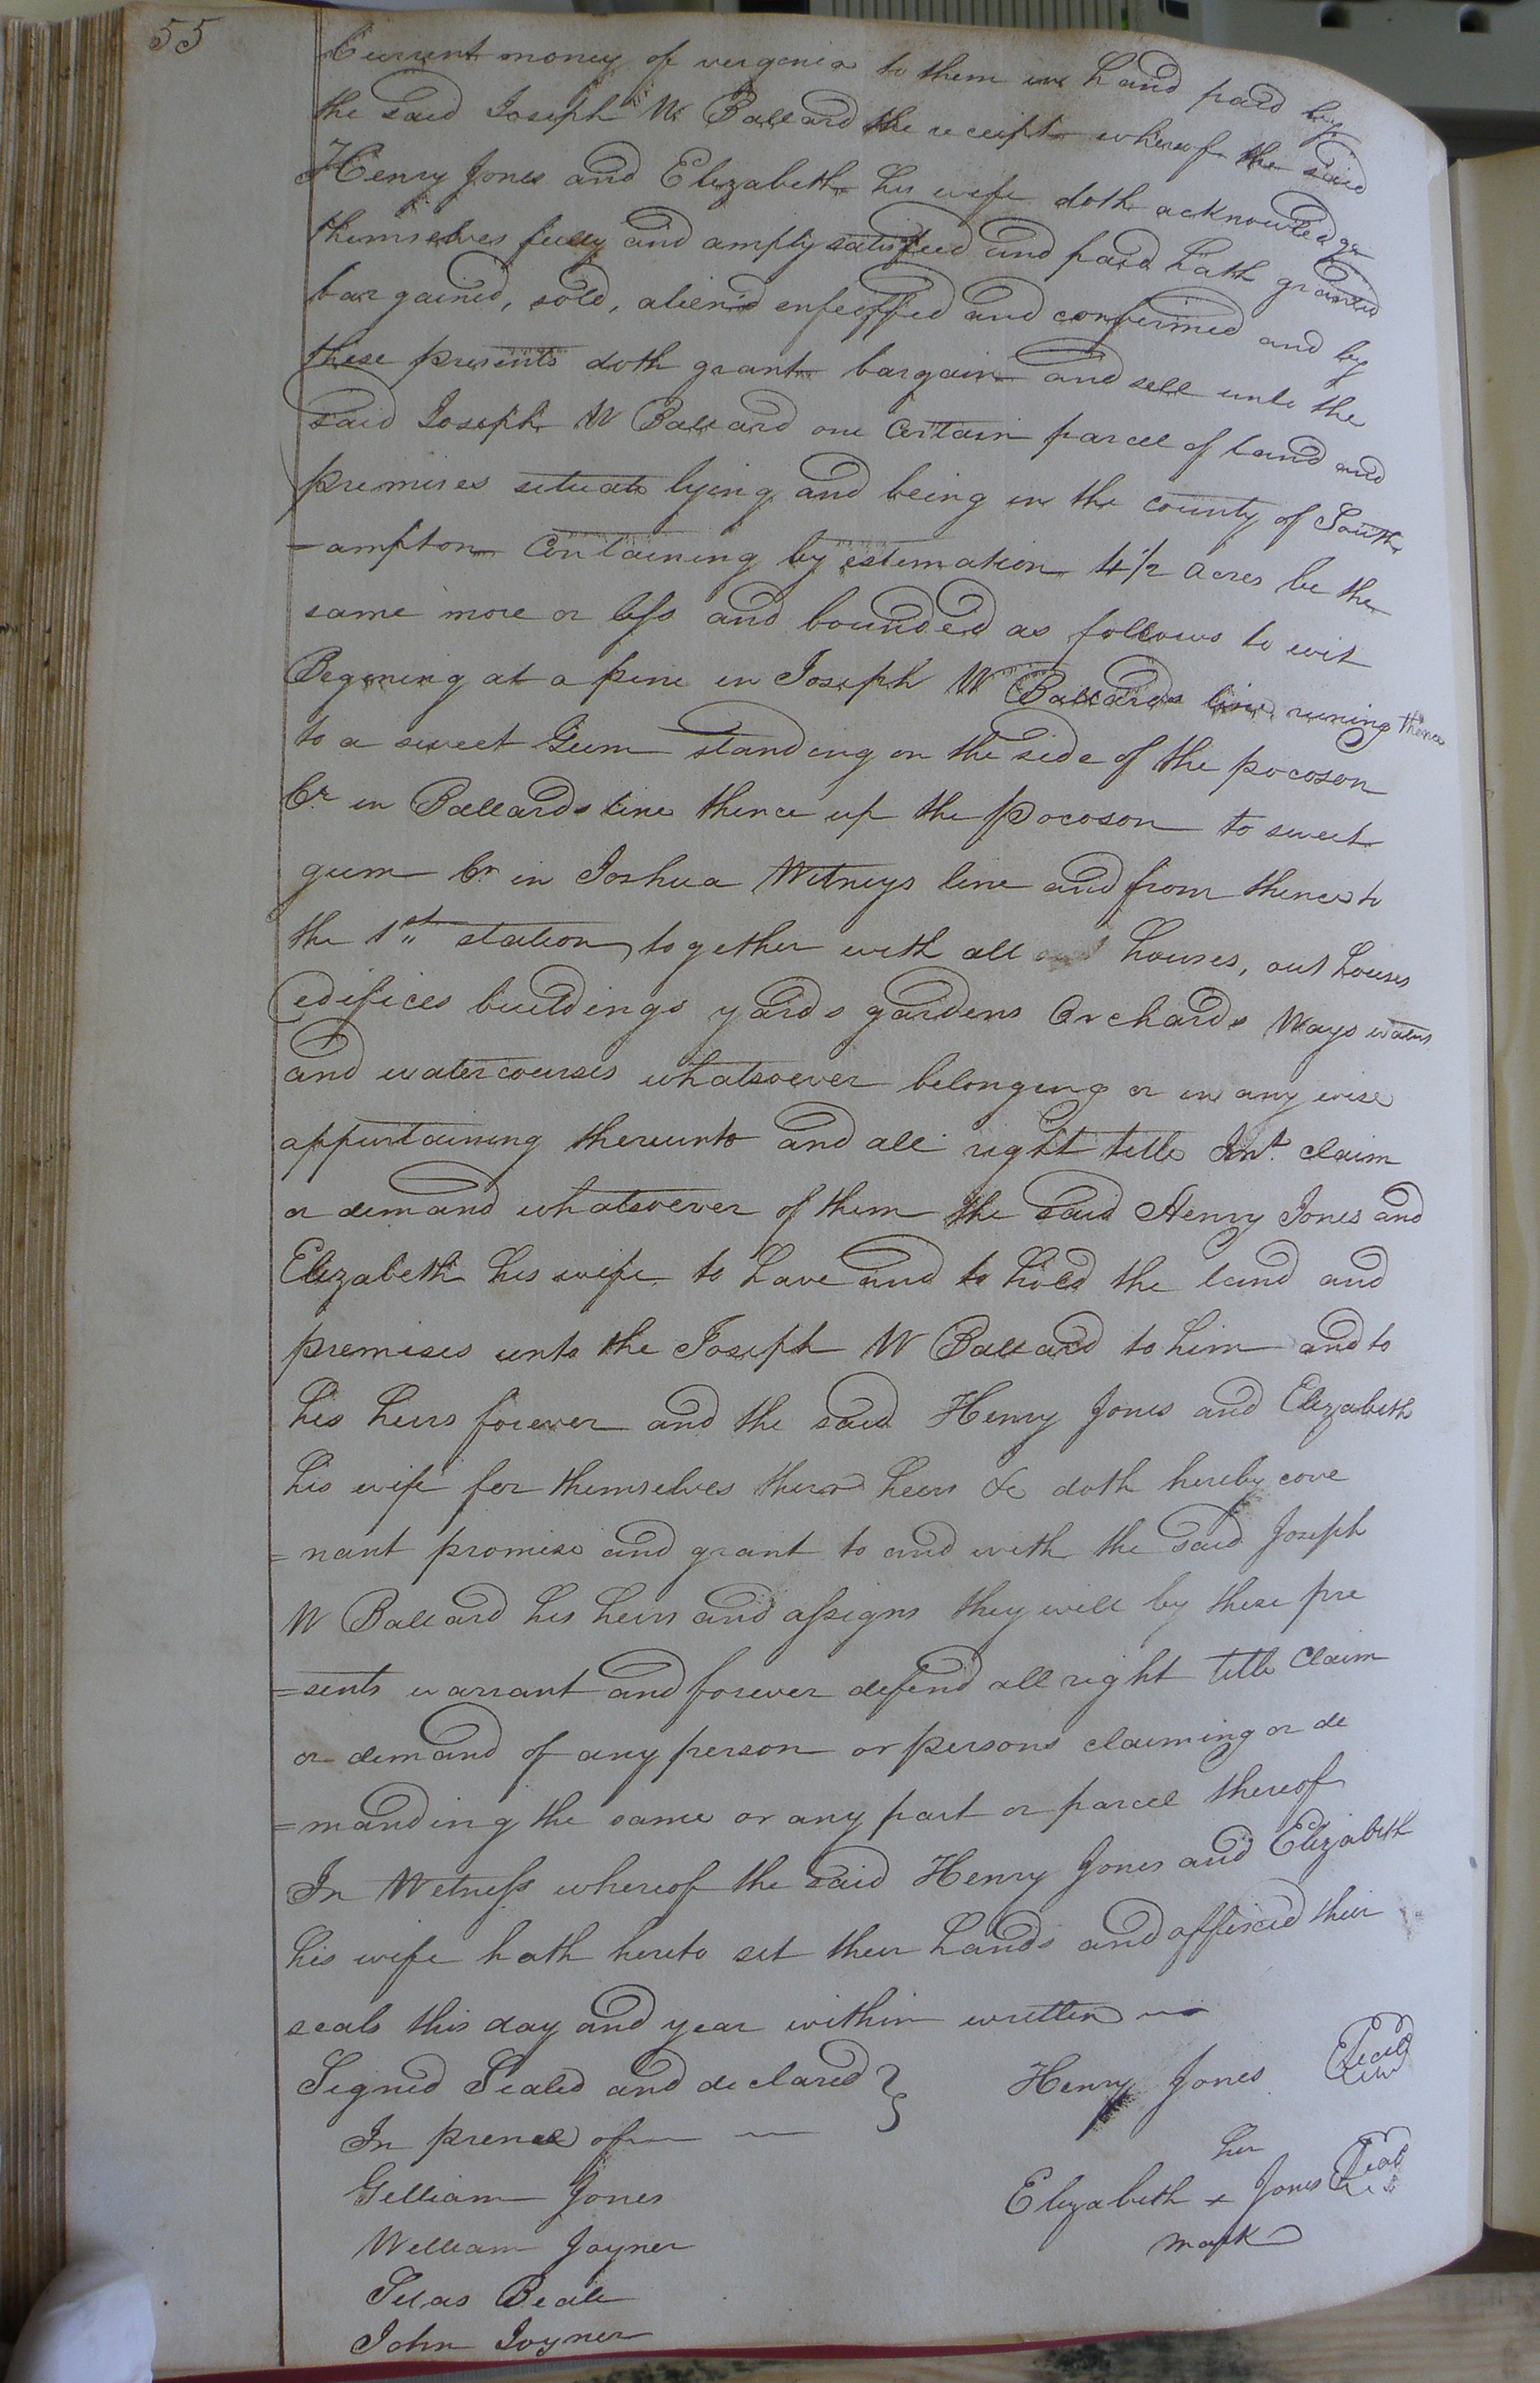 55
Current money of verginia to them in hand paid by
the said Joseph W Ballard the receipt whereof the said
Henry Jones and Elizabeth his wife doth acknowledge
themselves fully and amply satisfied and paid hath granted
bargained, sold, alien'd enfeoffed and confirmed and by
these presents doth grant bargain and sell unto the
said Joseph W Ballard one Certain parcel of land and
premises situate lying and being in the county of South
=ampton Containing by estimation 4 1/2 acres be the
same more or less and bounded as follows to wit
Begining at a pine in Joseph W Ballards line runing thence
to a sweet Gum standing on the side of the pocoson
Cr in Ballards line thence up the pocoson to sweet
gum Cr in Joshua Witneys line and from thence to
the 1st station together with all houses, out houses
edifices buildings yards gardens Orchards Ways waters
and watercourses whatsoever belonging or in any wise
appurtaining thereunto and all right title Int. claim
or demand whatsoever of them the said Henry Jones and
Elizabeth his wife to have and to hold the land and
premises unto the Joseph W Ballard to him and to
his heirs forever and the said Henry Jones and Elizabeth
his wife for themselves their heirs &c doth hereby cove
=nant promise and grant to and with the said Joseph
W Ballard his heirs and assigns they will by these pre
=sents warrant and forever defend all right title Claim
or demand of any person or persons claiming or de
=manding the same or any part or parcel thereof
In Witness whereof the said Henry Jones and Elizabeth
his wife hath hereto set their hands and affixed their
seals this day and year within written
Signed Sealed and declared } Henry Jones Seal
In prence of
her
Gilliam Jones Elizabeth x Jones Seal
mark
William Joyner
Silas Beale
John Joyner